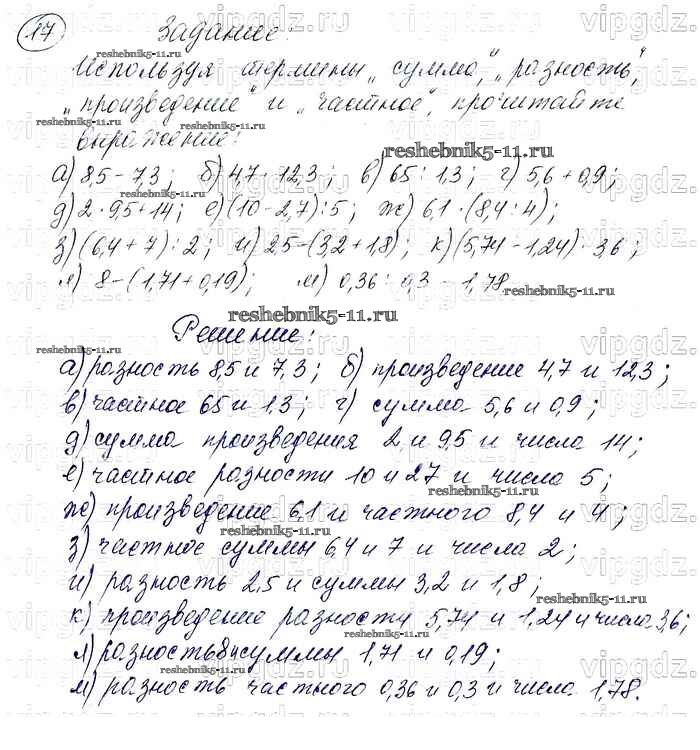 17 Задание:
Используя термины „сумма", „разность",
„произведение" и „частное", прочитайте
выражение:
а) 8,5 - 7,3; б) 4,7 · 12,3; в) 65 : 1,3; г) 5,6 + 0,9;
д) 2 · 9,5 + 14; е) (10 - 2,7) : 5; ж) 6,1 · (8,4 : 4);
з) (6,4 + 7) : 2; и) 2,5 - (3,2 + 1,8); к) (5,74 - 1,24) · 3,6;
л) 8 - (1,71 + 0,19); м) 0,36 : 0,3 - 1,78
Решение:
а) разность 8,5 и 7,3; б) произведение 4,7 и 12,3;
в) частное 65 и 1,3; г) сумма 5,6 и 0,9;
д) сумма произведения 2 и 9,5 и числа 14;
е) частное разности 10 и 2,7 и числа 5;
ж) произведение 6,1 и частного 8,4 и 4;
з) частное суммы 6,4 и 7 и числа 2;
и) разность 2,5 и суммы 3,2 и 1,8;
к) произведение разности 5,74 и 1,24 и числа 3,6;
л) разность 8 и суммы 1,71 и 0,19;
м) разность частного 0,36 и 0,3 и числа 1,78.
reshebnik5-11.ru
vipgdz.ru